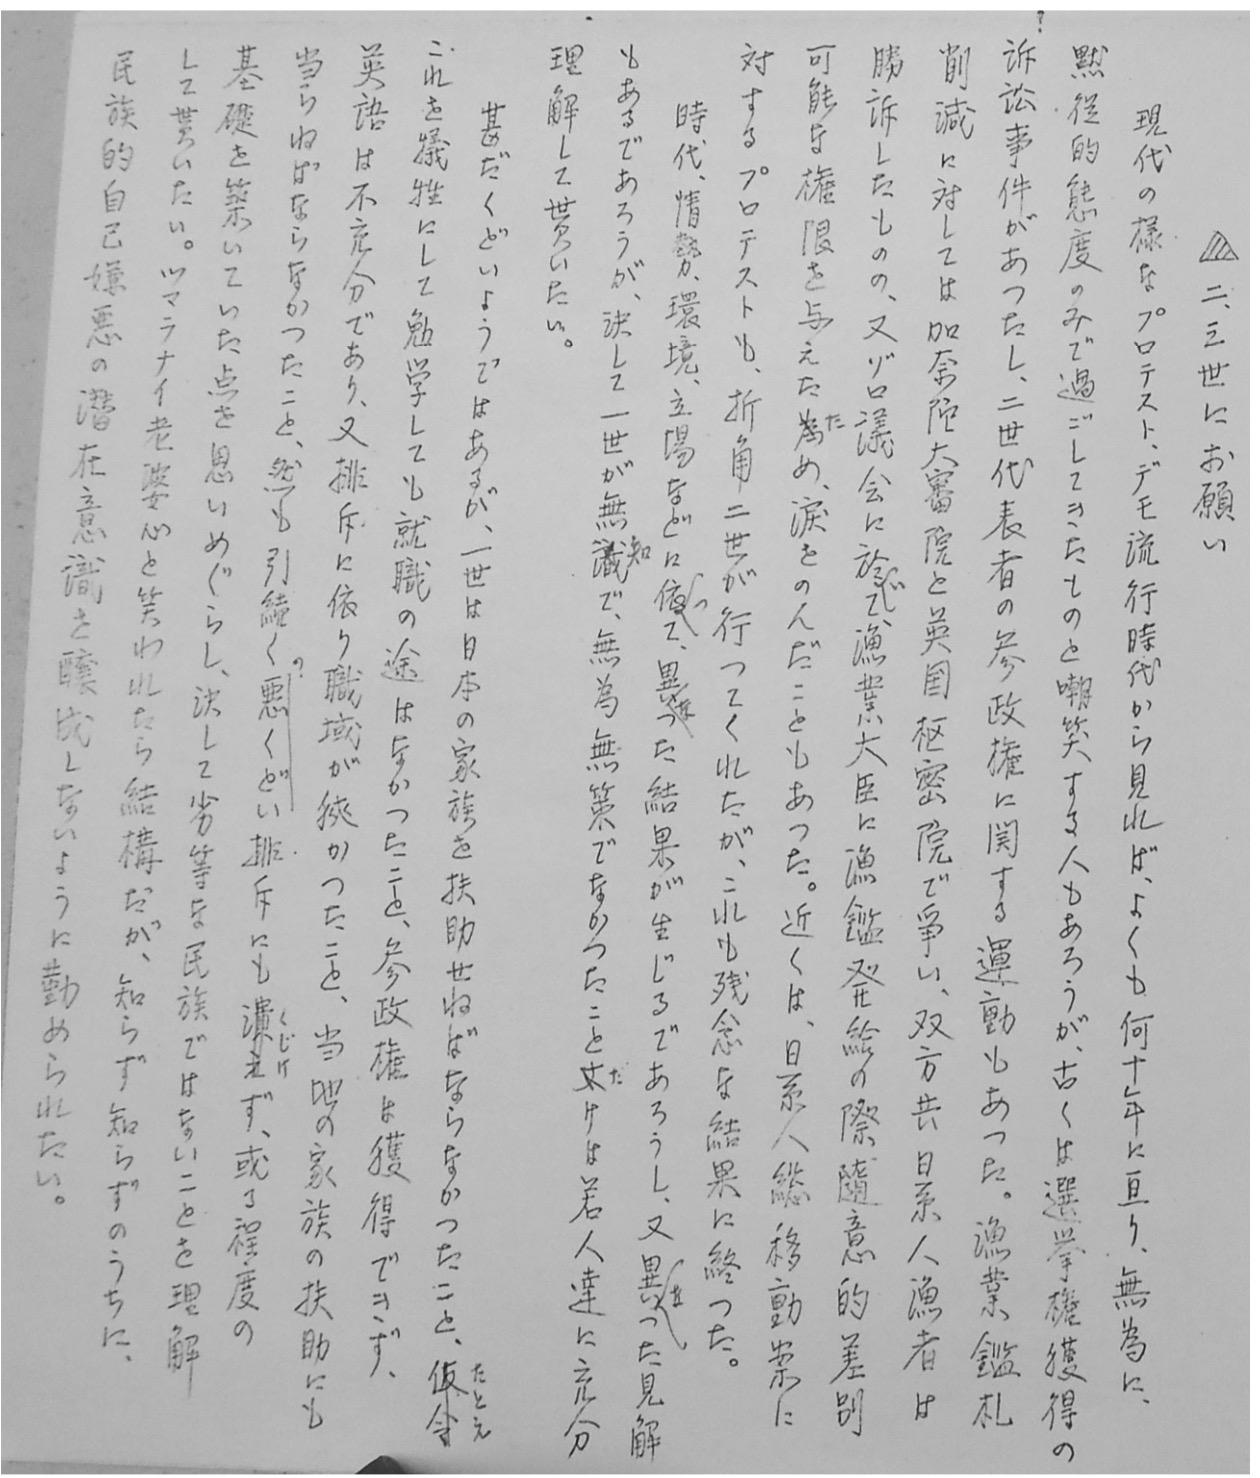 二、三世にお願い
現代の様なプロテスト、デモ流行時代から見れば、よくも何十年に亘り、無為に、
黙従的態度のみで過ごしてきたものと嘲笑する人もあろうが、古くは選挙権獲得の
訴訟事件があつたし、二世代表者の参政権に関する運動もあつた。漁業鑑札
削減に対しては加奈陀大審院と英国枢密院で争い、双方共日系人漁者は
勝訴したものの、又ゾロ議会に於て漁業大臣に漁鑑発給の際随意的差別
可能な権限を与えた為め、涙をのんだこともあつた。近くは、日系人総移動案に
対するプロテストも、折角二世が行つてくれたが、これも残念な結果に終つた。
時代、情勢、環境、立場などに依つて、異つた結果が生じるであろうし、又異つた見解
もあるであろうが、決して一世が無知で、無為無策でなかつたこと丈けは若人達に充分
理解して貰いたい。
甚だくどいようではあるが、一世は日本の家族を扶助せねばならなかつたこと、仮令
これを犠牲にして勉学しても就職の途はなかつたこと、参政権は獲得できず、
英語は不充分であり、又排斥に依り職域が狭かつたこと、当地の家族の扶助にも
当らねばならなかつたこと、然も引続く悪くどい排斥にも潰えず、或る程度の
基礎を築いていた点を思いめぐらし、決して劣等な民族ではないことを理解
して貰いたい。ツマラナイ老婆心と笑われたら結構だが、知らず知らずのうちに、
民族的自己嫌悪の潜在意識を醸成しないように勤められたい。